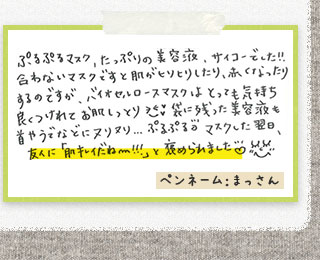 ぷるぷるマスク,たっぷりの美容液、サイコーでした!!
合わないマスクですと肌がヒリヒリしたり、赤くなったり
するのですが、バイオセルロースマスクはとっても気持ち
良くつけれてお肌しっとり 袋に残った美容液も
首やうでなどにヌリヌリ… ぷるぷる マスクした翌日、
友人に「肌キレイだねー!!!」と褒められました♡
ペンネーム:まっさん